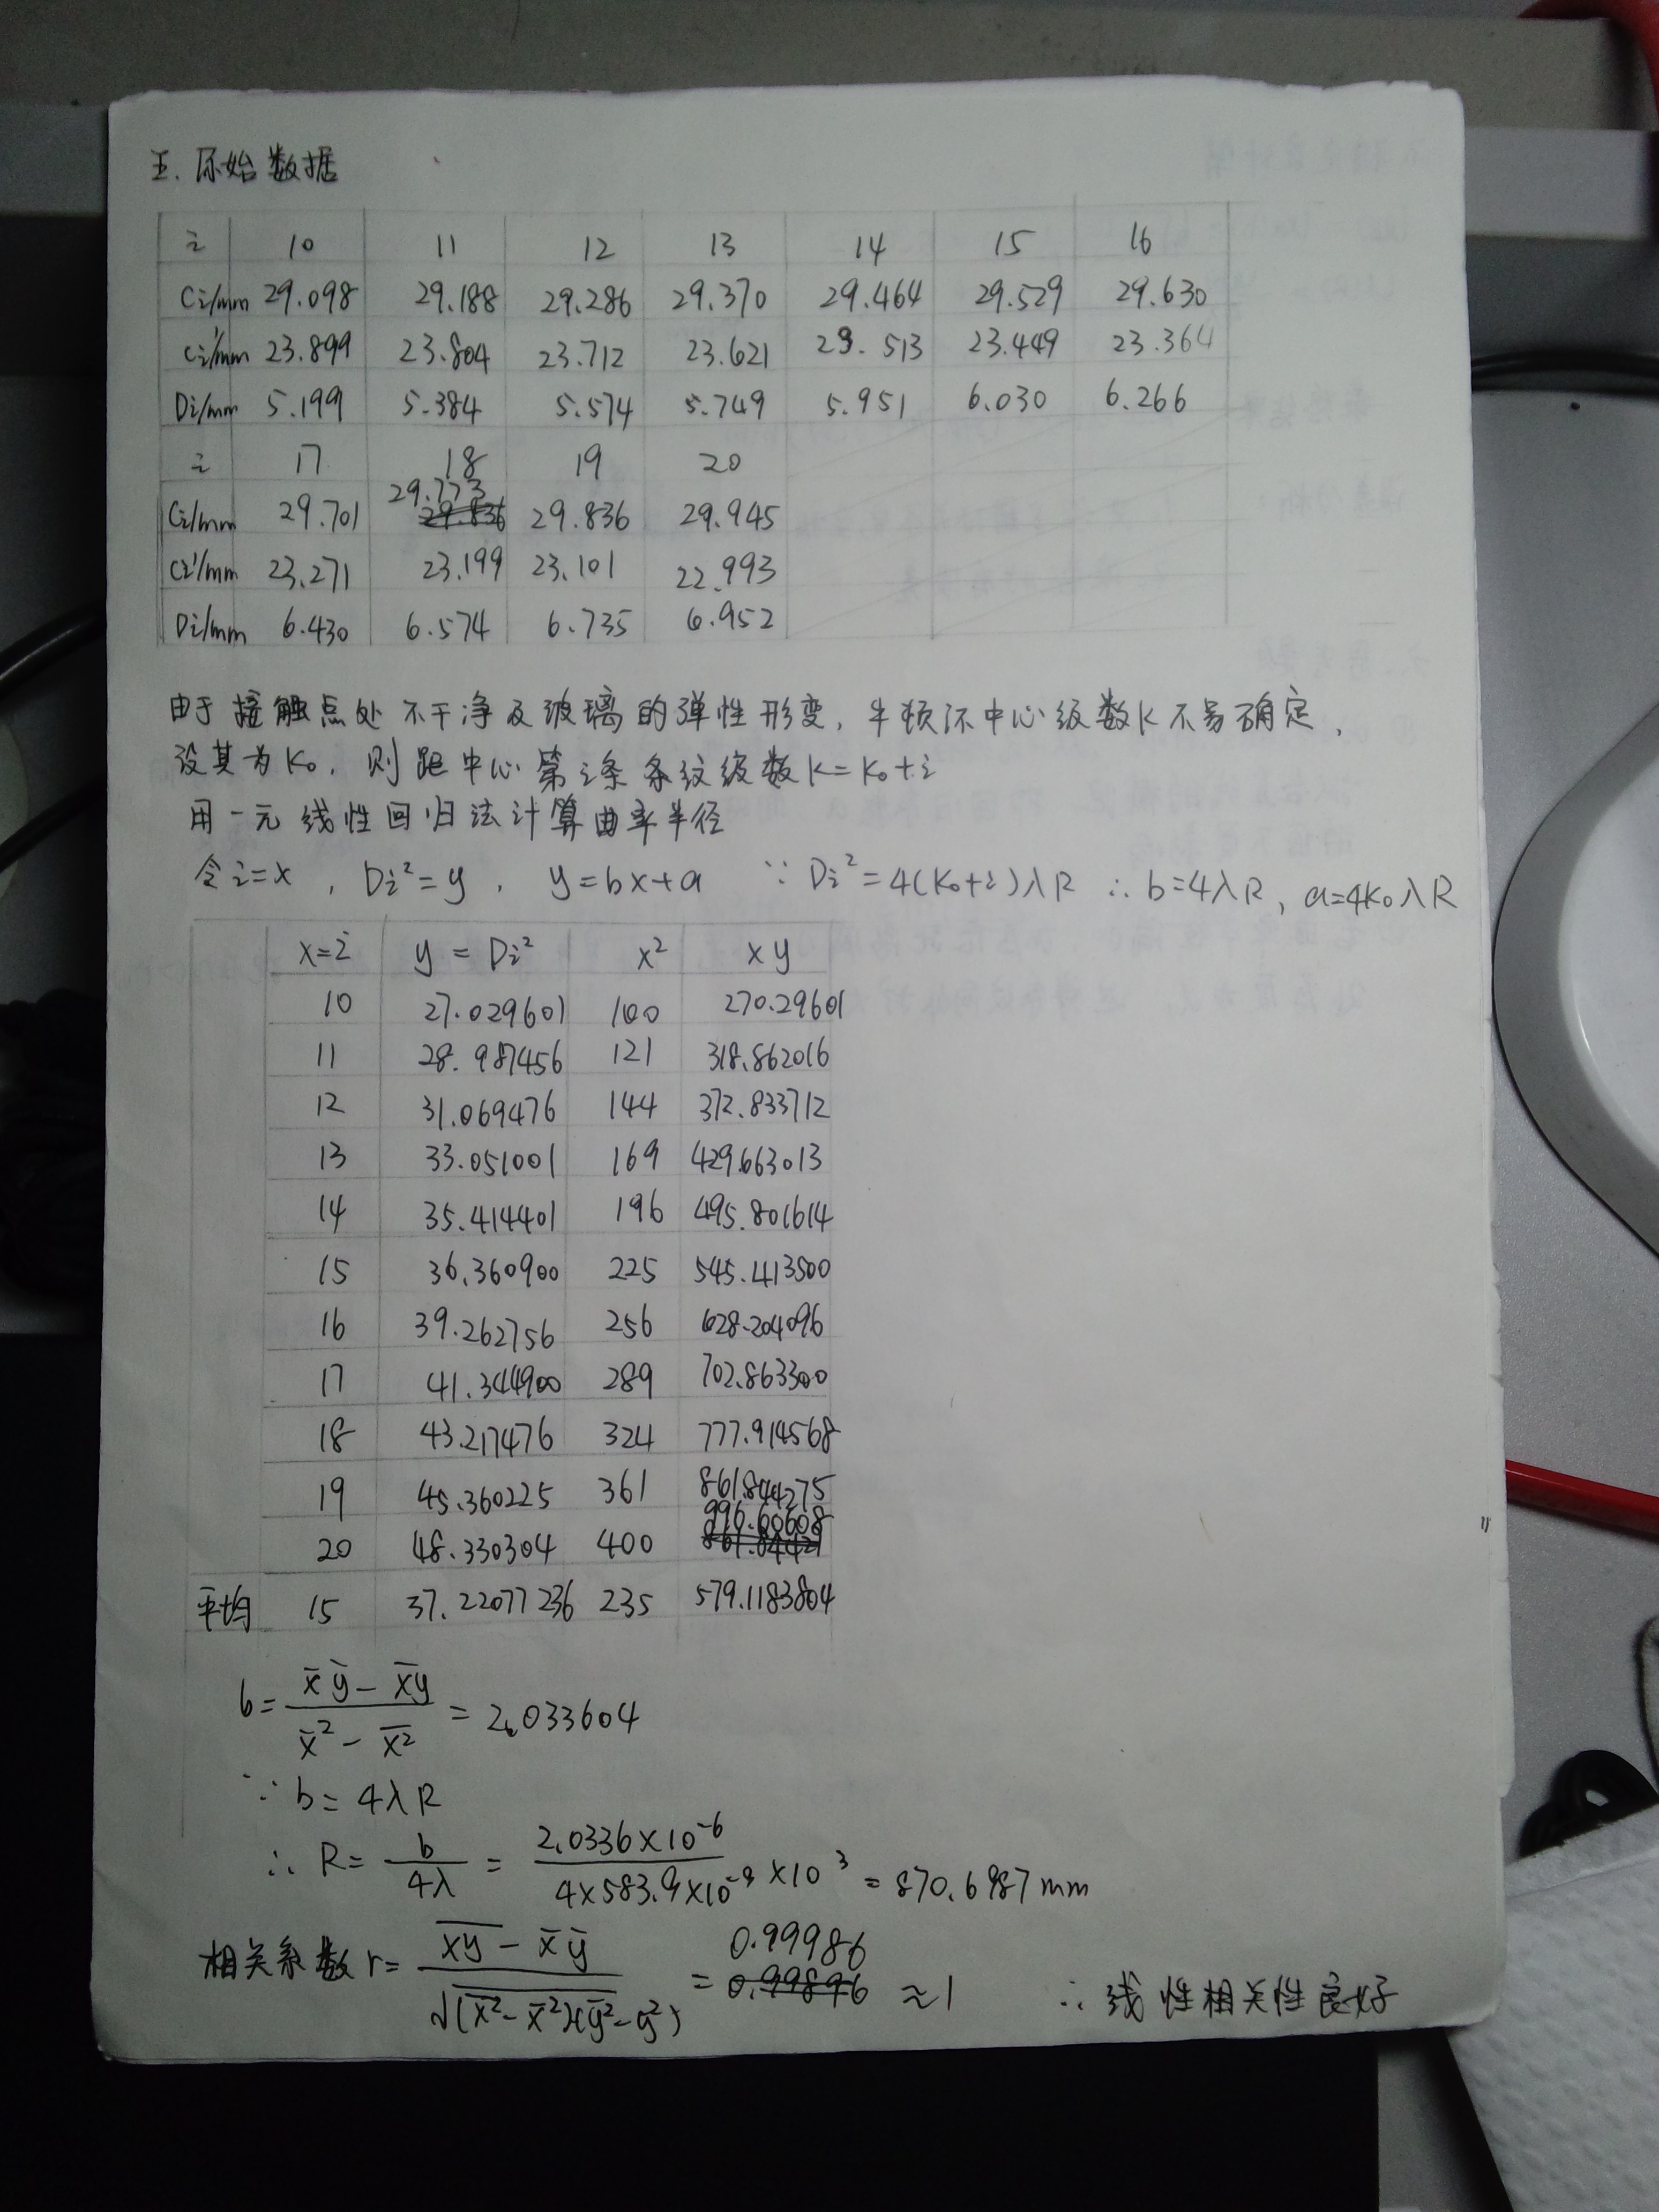 五. 原始数据
i 10 11 12 13 14 15 16
Ci/mm 29.098 29.188 29.286 29.370 29.464 29.529 29.630
Ci'/mm 23.899 23.804 23.712 23.621 23.513 23.449 23.364
Di/mm 5.199 5.384 5.574 5.749 5.951 6.030 6.266
i 17 18 19 20
Ci/mm 29.701 29.773 29.836 29.945
Ci'/mm 23.271 23.199 23.101 22.993
Di/mm 6.430 6.574 6.735 6.952
由于接触点处不干净及玻璃的弹性形变, 牛顿环中心级数K不易确定,
设其为K₀, 则距中心第i条条纹级数K=K₀+i
用一元线性回归法计算曲率半径
令i=x, Di²=y, y=bx+a ∵Di²=4(K₀+i)λR ∴b=4λR, a=4K₀λR
x=i y=Di² x² xy
10 27.029601 100 270.29601
11 28.987456 121 318.862016
12 31.069476 144 372.833712
13 33.051001 169 429.663013
14 35.414401 196 495.801614
15 36.360900 225 545.413500
16 39.262756 256 628.204096
17 41.344900 289 702.863300
18 43.217476 324 777.914568
19 45.360225 361 861.844275
20 48.330304 400 996.60608
平均 15 37.22077236 235 579.1183804
b = (x̄ȳ - x̅y̅)/(x̄² - x̅²̅) = 2.033604
∵ b = 4λR
∴ R = b/4λ = 2.0336×10⁻⁶/4×583.9×10⁻⁹ ×10³ = 870.6987mm
相关系数r = (x̅y̅ - x̄ȳ)/√(x̅²̅ - x̄²)(ȳ² - y̅²̅) = 0.99986 ≈1 ∴线性相关性良好